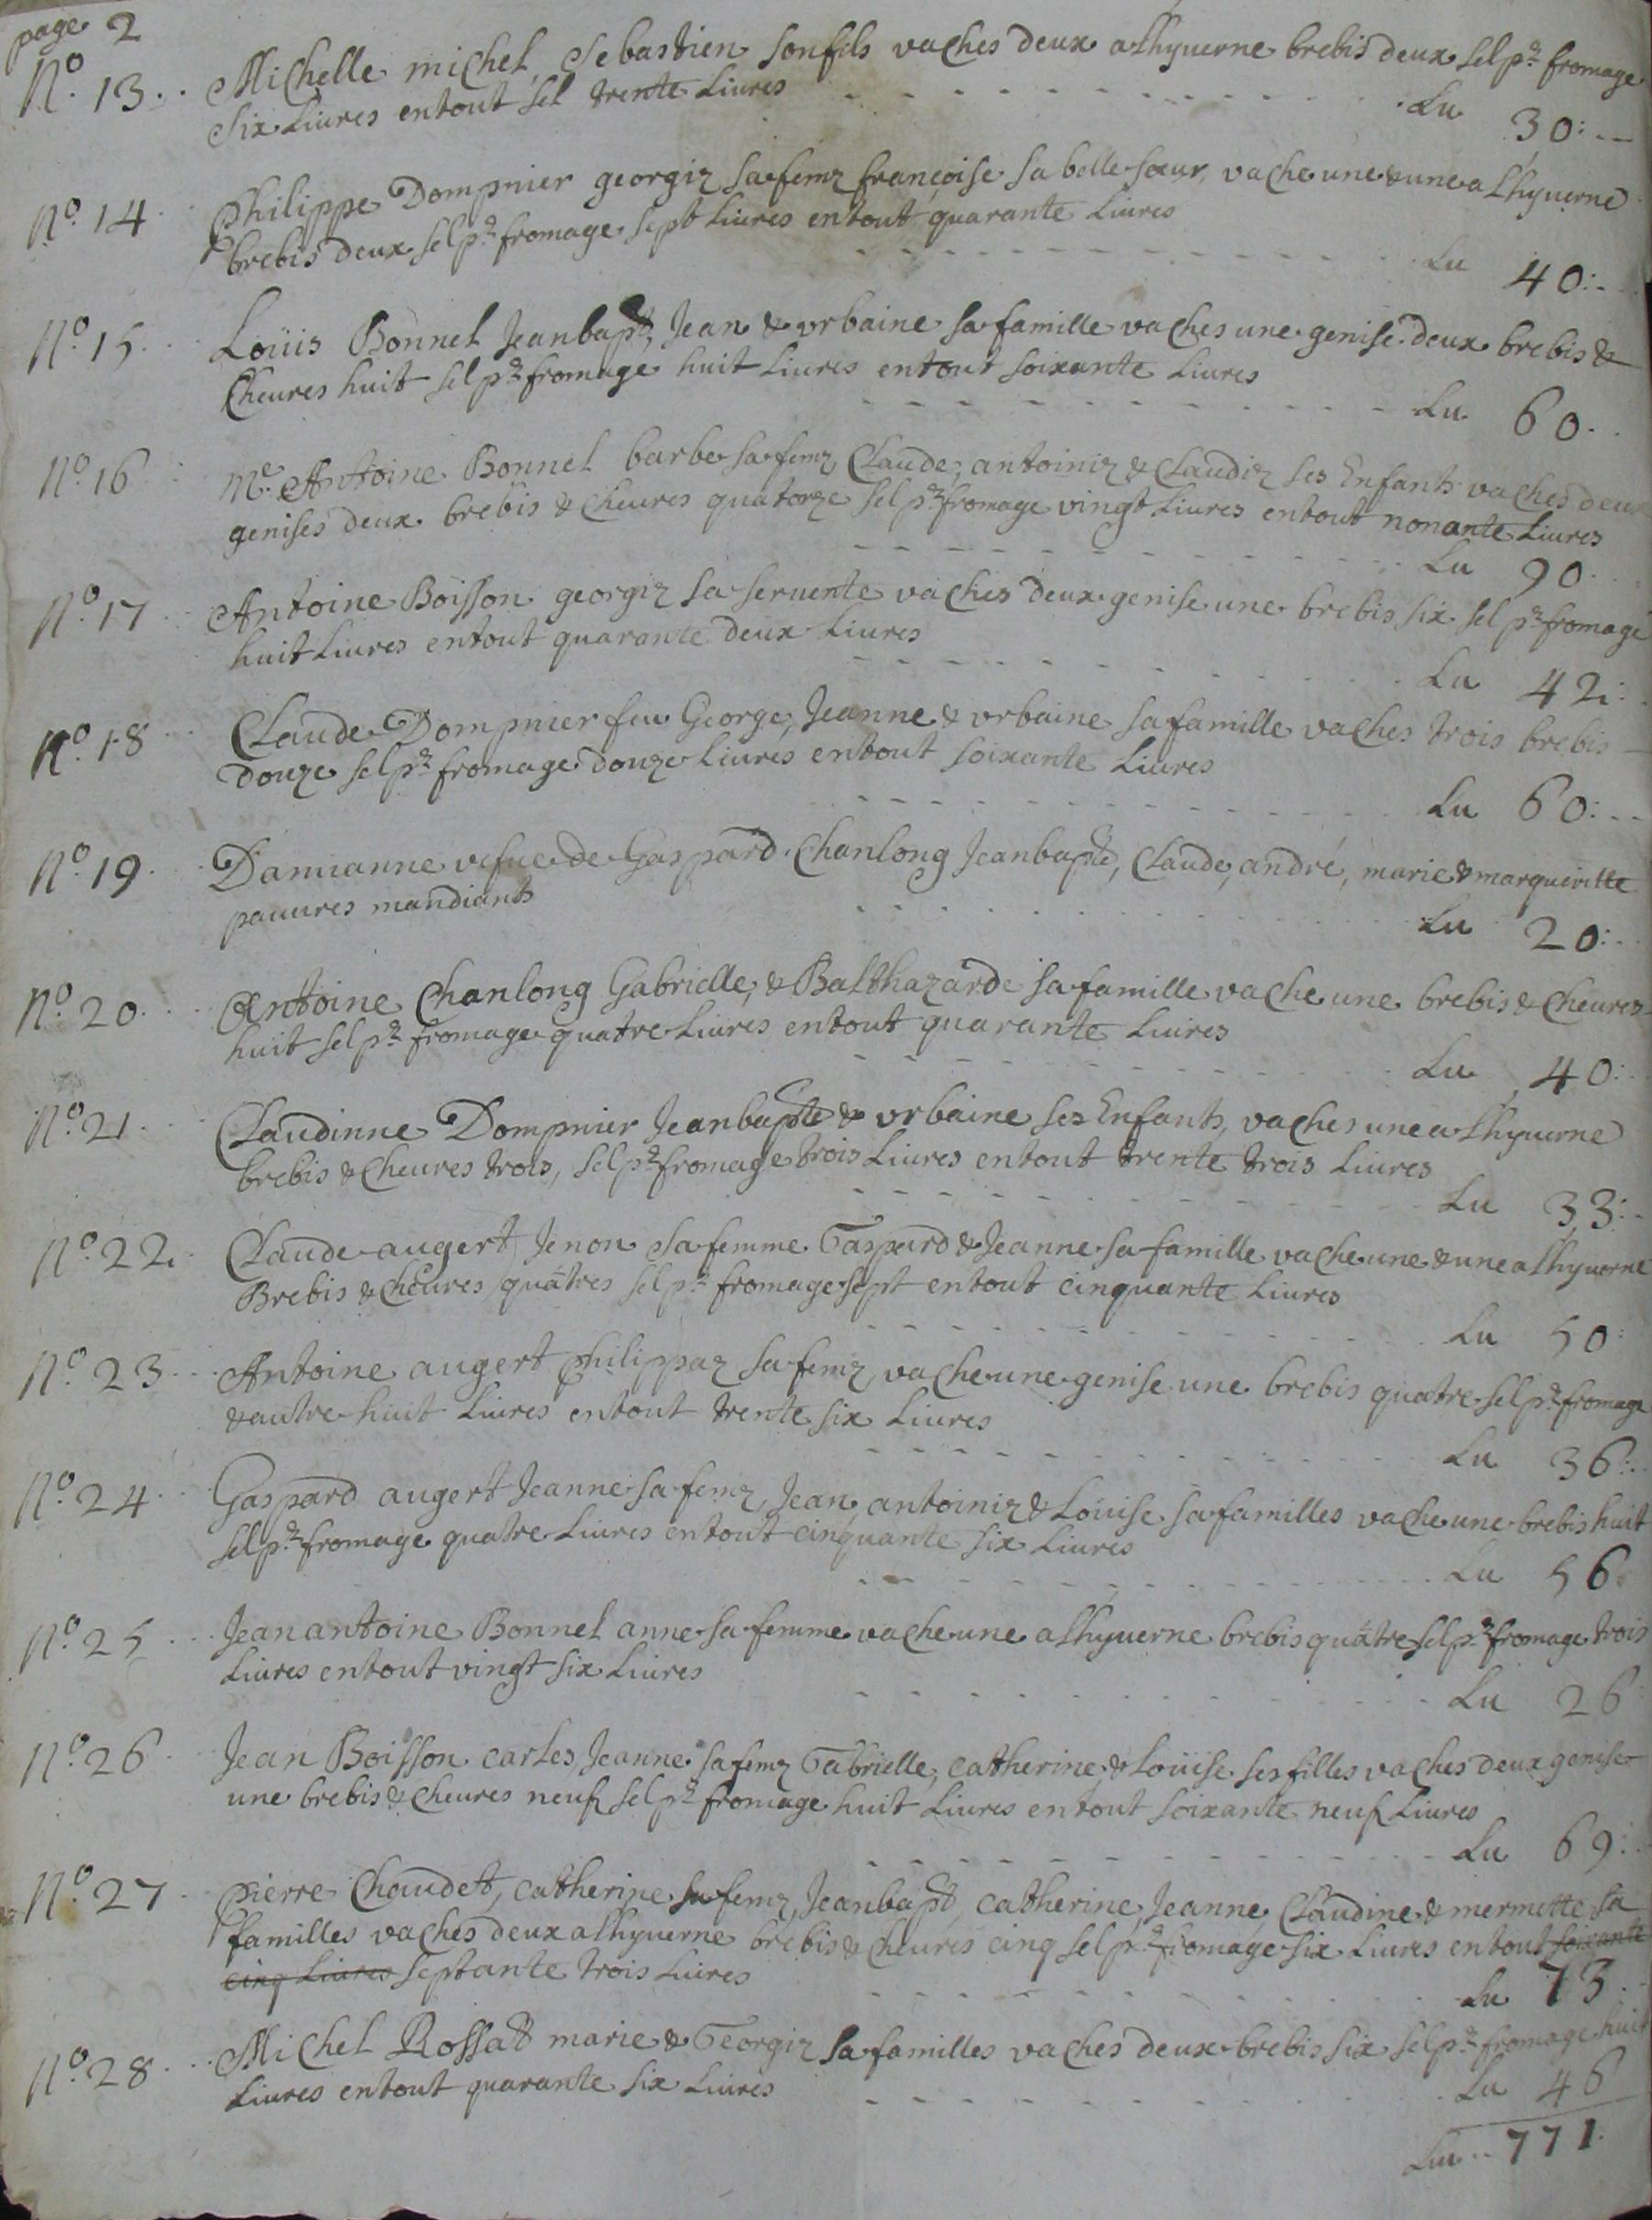 page 2
N.º 13. Michelle michel, Sebastien sonfils vaches deux alhyuerne brebis deux sel p.r fromage
six Liures entout sel trente Liures Lu 30:
N.º 14 Philippe Dompnier georgiz sa femz françoise sa belle sœur, vache une & une a lhyuerne
brebis deux sel p.r fromage sept Liures entout quarante Liures Lu 40:
N.º 15 Loüis Bonnel Jeanbapt, Jean & vrbaine sa famille vaches une genise deux brebis &
Cheures huit sel p.r fromage huit Liures entout soixante Liures Lu 60
N.º 16 M.e Antoine Bonnel barbe sa femz Claude, antoiniz & Claudiz ses Enfants vaches deux
genises deux brebis & Cheures quatorze sel p.r fromage vingt Liures entout nonante Liures
Lu 90
N.º 17 Antoine Boisson georgiz sa seruente vaches deux genise une brebis six sel p.r fromage
huit Liures entout quarante deux Liures Lu 42:
N.º 18 Claude Dompnier feu George, Jeanne & vrbaine sa famille vaches trois brebis
douze sel p.r fromage douze Liures entout soixante Liures Lu 60:
N.º 19 Damianne vefue de Gaspard Chanlong Jeanbapte, Claude, andré, marie & margueritte
pauures mandiants Lu 20:
N.º 20 Antoine Chanlong Gabrielle, & Balthazarde sa famille vache une brebis & Cheures
huit sel p.r fromage quatre Liures entout quarante Liures Lu 40:
N.º 21 Claudinne Dompnier Jeanbapte & vrbaine ses Enfants, vaches une a lhyuerne
brebis & Cheures trois, sel p.r fromage trois Liures entout trente trois Liures Lu 33:
N.º 22. Claude augert Jenon sa femme Gaspard & Jeanne sa famille vache une & une a lhyuerne
Brebis & cheures quatres sel p.r fromage sept entout cinquante Liures Lu 50
N.º 23 Antoine augert philippaz sa femz, vache une genise une brebis quatre sel p.r fromage
& autre huit Liures entout trente six Liures Lu 36:
N.º 24 Gaspard augert Jeanne sa femz, Jean, antoiniz & Louise sa familles vache une brebis huit
sel p.r fromage quatre Liures entout cinquante six Liures Lu 56
N.º 25 Jean antoine Bonnel anne sa femme vache une a lhyuerne brebis quatre sel p.r fromage trois
Liures entout vingt six Liures Lu 26
N.º 26 Jean Boisson carles Jeanne sa femz Gabrielle, catherine, & Loüise ses filles vaches deux genise
une brebis & Cheures neuf sel p.r fromage huit Liures entout soixante neuf Liures Lu 69:
N.º 27 Pierre Chaudet, catherine sa femz, Jeanbapt, catherine, Jeanne, Claudine & mermette sa
familles vaches deux a lhyuerne brebis & Cheures cinq sel p.r fromage six Liures entout soixante
cinq Liures septante trois Liures Lu 73
N.º 28 Michel Rossat marie & Georgiz sa familles vaches deux brebis six sel p.r fromage huit
Liures entout quarante six Liures Lu 46
Lu 771